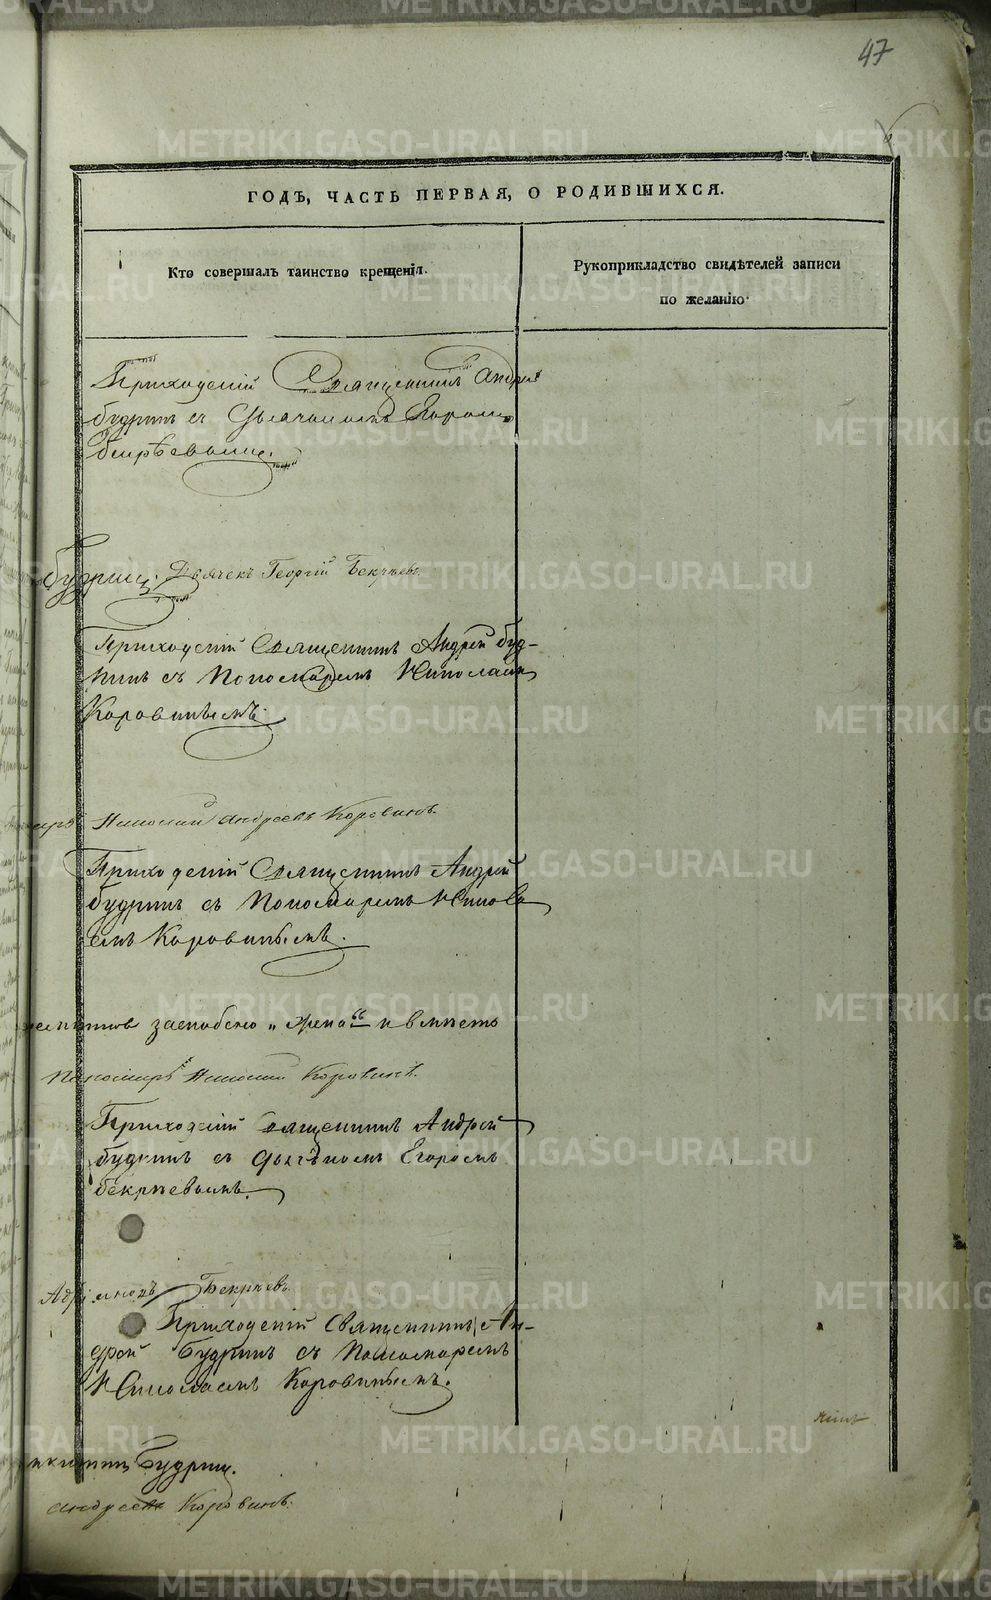 47
METRIKI.GASO-URAL.RU
ГОДЪ, ЧАСТЬ ПЕРВАЯ, О РОДИВШИХСЯ.
Кто совершалъ таинство крещенія.
Рукоприкладство свидѣтелей записи
по желанію.
Приходскій Священникъ Андрей
Будринъ съ Дьячкомъ Егоромъ
Бекрѣевымъ.
Будринъ. Дьячекъ Георгій Бекрѣевъ.
Приходскій Священникъ Андрей Буд-
ринъ съ Пономаремъ Николаемъ
Коровинымъ.
Николай Андреевъ Коровинъ.
Приходскій Священникъ Андрей
Будринъ съ Пономаремъ Никола
емъ Коровинымъ.
„жена“ и вместъ
Пономарь Николай Коровинъ.
Приходскій Священникъ Андрей
Будринъ съ Дьячкомъ Егоромъ
Бекрѣевымъ.
Бекрѣевъ
Приходскій Священникъ Ан-
дрей Будринъ съ Пономаремъ
Николаемъ Коровинымъ.
Будрин.
Андреевъ Коровинъ.